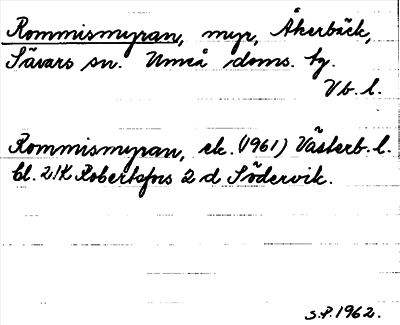 Rommismyran, myr, Åkerbäck,
Sävars sn. Umeå doms. tg.
Vb. l.
Rommismyran, ek. (1961) Västerb. l.
bl. 21K Robertsfors 2 d Södervik.
S.P. 1962.